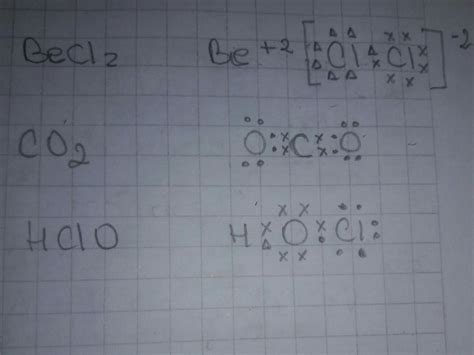 BeCl₂ Be⁺² [Cl Cl]⁻²
CO₂ O C O
HClO H O Cl